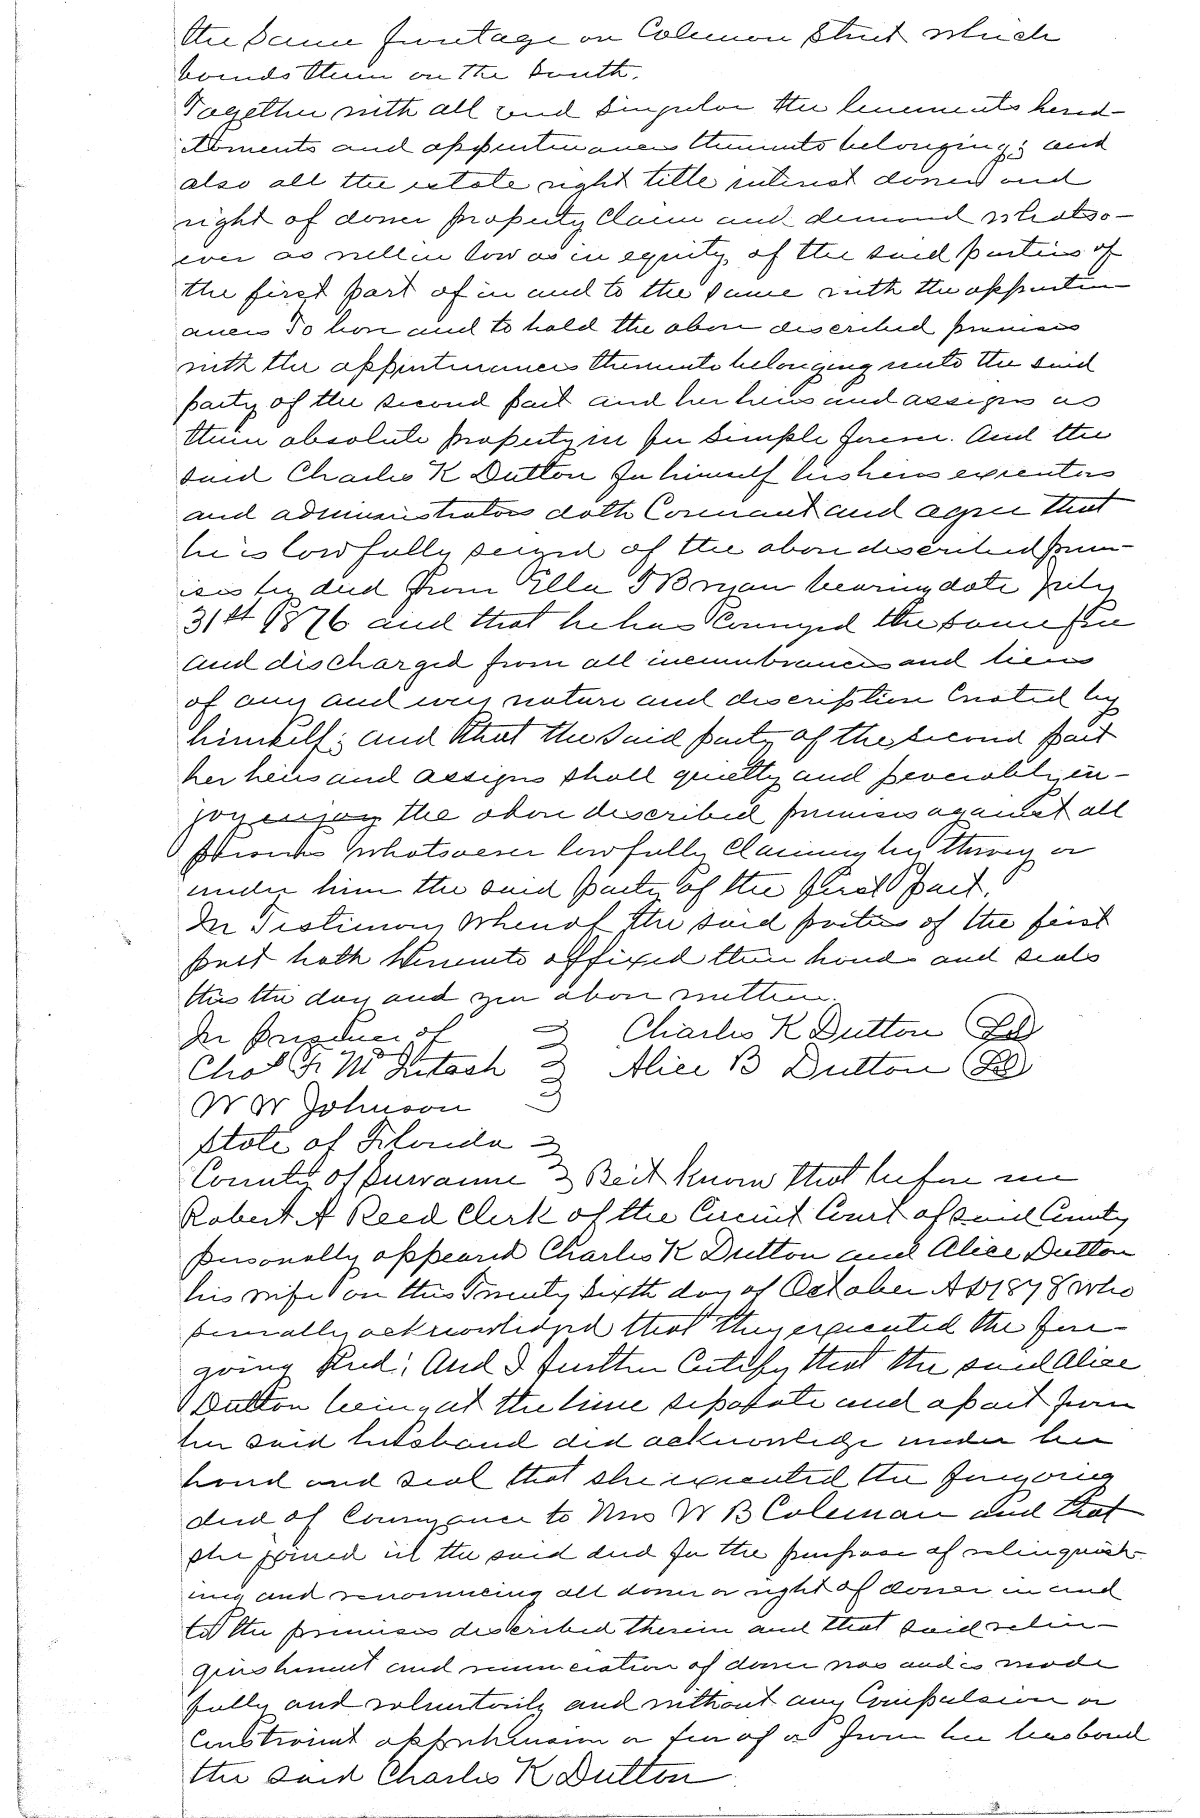 the same frontage on Coleman Street which
bounds them on the South.
Together with all and Singular the tenements hered-
itaments and appurtenances thereunto belonging; and
also all the estate right title interest dower and
right of dower property Claim and demand whatso-
ever as well in law as in equity of the said parties of
the first part of in and to the same with the appurten
ances To have and to hold the above described premises
with the appurtenances thereunto belonging unto the said
party of the second part and her heirs and assigns as
their absolute property in fee Simple forever. And the
said Charles K Dutton for himself his heirs executors
and administrators doth Covenant and agree that
he is lawfully seized of the above described prem-
ises by deed from Ella T Bryan bearing date July
31st 1876 and that he has Conveyed the same free
and discharged from all incumbrances and liens
of any and every nature and description Created by
himself; and that the said party of the second part
her heirs and assigns shall quietly and peaceably en-
joy enjoy the above described premises against all
persons whatsoever lawfully Claiming by through or
under him the said party of the first part.
In Testimony Whereof the said parties of the first
part hath hereunto affixed their hands and seals
this the day and year above written.
In presence of Charles K Dutton
Chas F. McIntosh Alice B Dutton
W W Johnson
State of Florida
County of Suwannee Be it known that before me
Robert A Reed Clerk of the Circuit Court of said County
personally appeared Charles K Dutton and Alice Dutton
his wife on this Twenty Sixth day of October AD 1878 who
severally acknowledged that they executed the fore-
going deed; And I further Certify that the said Alice
Dutton being at the time separate and apart from
her said husband did acknowledge under her
hand and seal that she executed the foregoing
deed of Conveyance to Mrs W B Coleman and that
she joined in the said deed for the purpose of relinquish-
ing and renouncing all dower or right of dower in and
to the premises described therein and that said relin-
quishment and renunciation of dower was and is made
fully and voluntarily and without any Compulsion or
Constraint apprehension or fear of or from her husband
the said Charles K Dutton